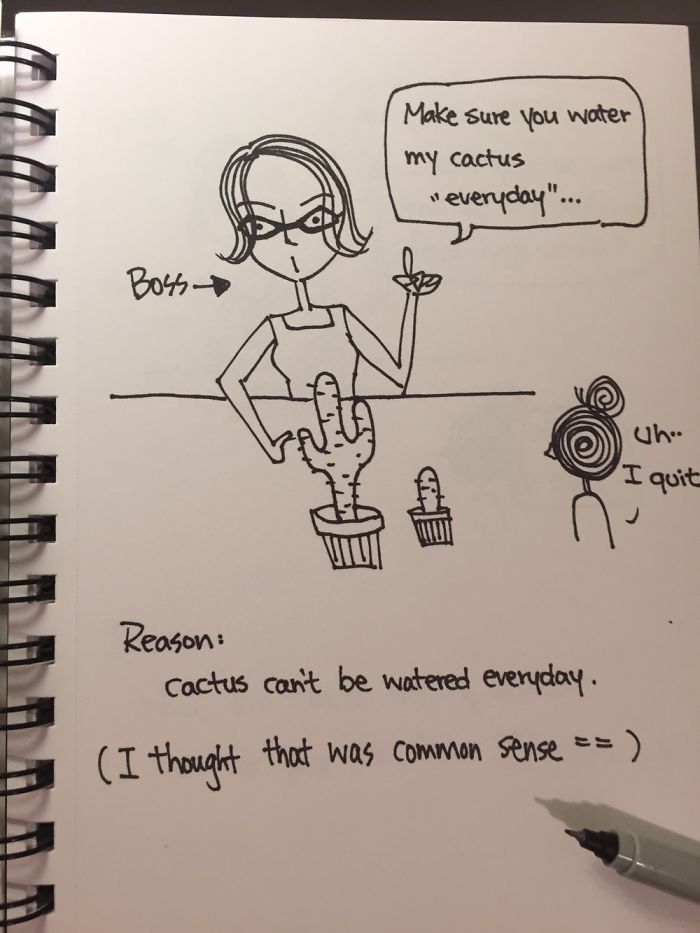 Make sure you water
my cactus
"everyday"...
Boss
uh..
I quit
Reason:
cactus can't be watered everyday.
(I thought that was common sense == )